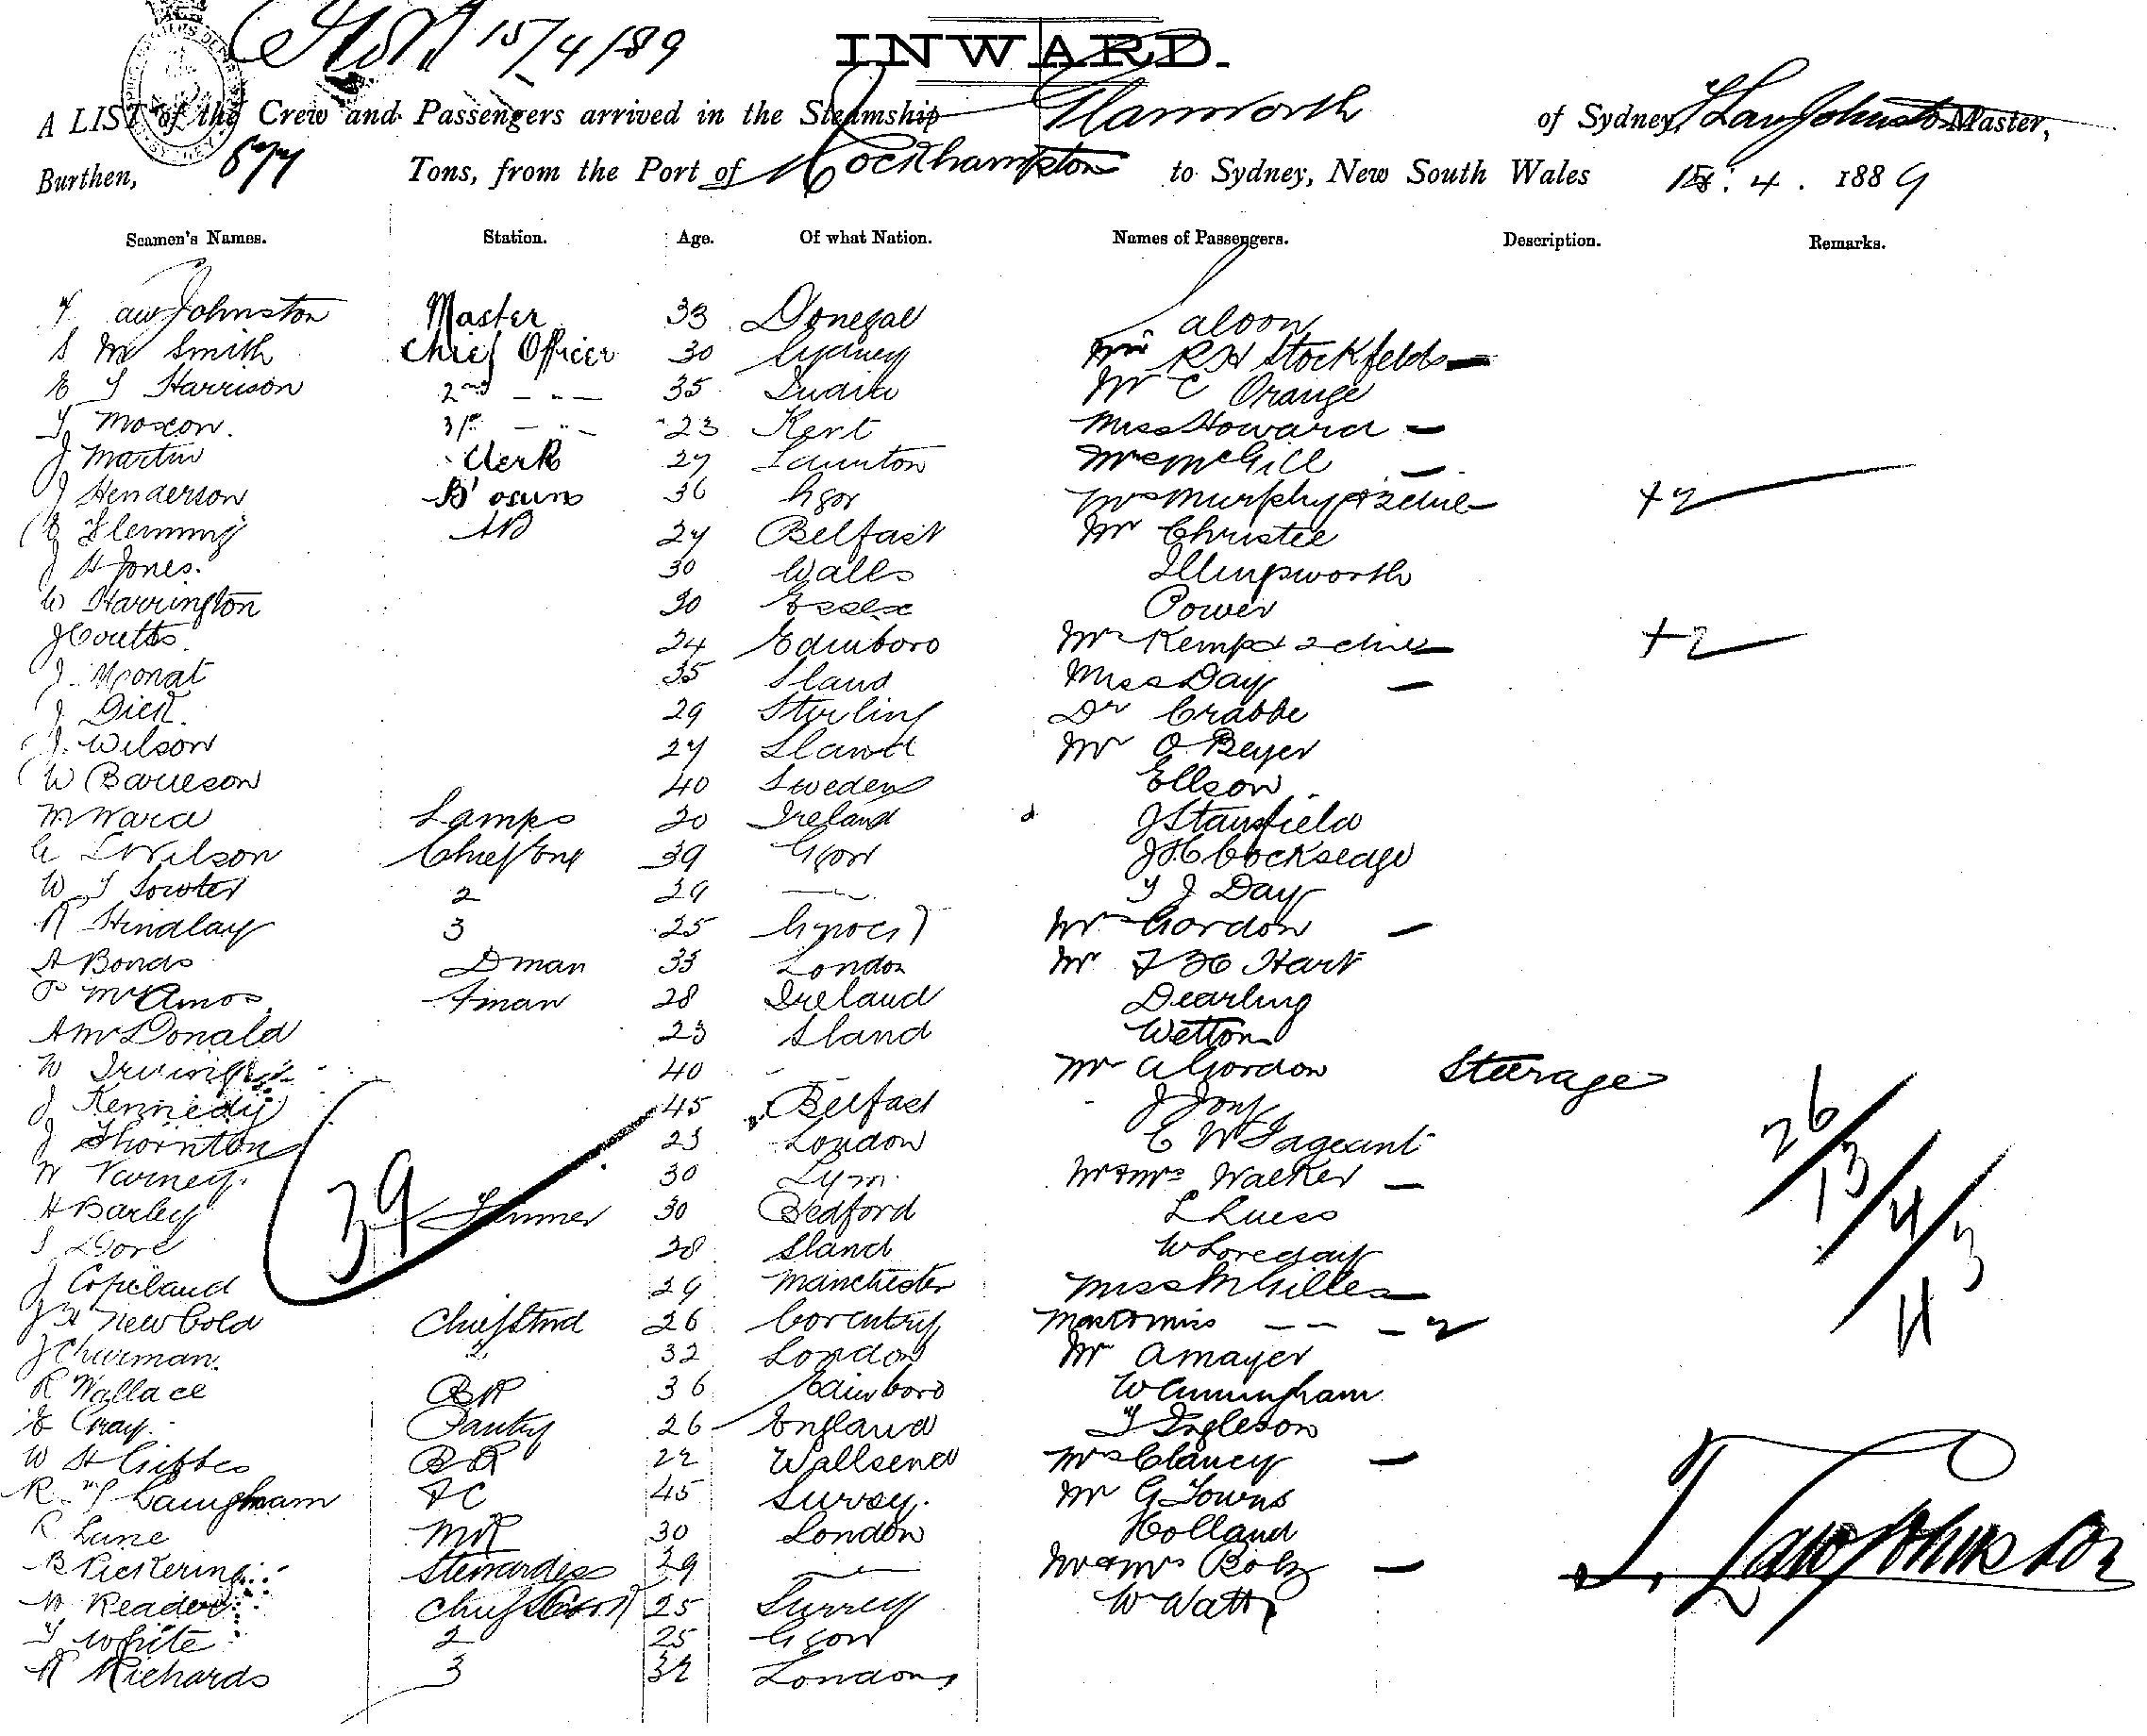 15/4/89
INWARD.
A LIST of the Crew and Passengers arrived in the Steamship Glanworth of Sydney, T Law Johnston Master,
Burthen, 877 Tons, from the Port of Rockhampton to Sydney, New South Wales 15. 4. 1889
Seamen's Names. Station. Age. Of what Nation. Names of Passengers. Description. Remarks.
T Law Johnston Master 33 Donegal Saloon
S M Smith Chief Officer 30 Sydney R H Stockfeld
E J Harrison 2nd - " - 35 Mr C Orange
T Moxon. 3rd - " - 23 Kent Miss Howard
J Martin Clerk 27 Taunton Mrs McGill
J Henderson B'osun 36 Ggow Mrs Murphy & 2 chil +2
E Flemming AB 24 Belfast Mr Christie
J H Jones. 30 Wales Illingworth
W Harrington 30 Essex Power
J Coutts. 24 Edinboro Mrs Kemp & 2 chil +2
J. 35 Sland Miss Day
J Dick. 29 Stirling Dr Crabbe
J. Wilson 24 Sland Mr O Beyer
W 40 Sweden Ellson
M Ward Lamps 20 Ireland J Stansfield
G L Wilson Chief Eng 39 Ggow J H Cocksedge
W J Sowter 2 29 T J Day
R Hindlay 3 25 Mrs Gordon
A Bonds D man 33 London Mr F Hart
P McAmos F man 28 Ireland Dearling
A McDonald 23 Sland Wetton
W Irving 40 Mr A Gordon Steerage
J Kennedy 45 Belfast J Jon
J Thornton 23 London E W Pageant
W Varney. 30 Lym. Mr & Mrs Walker 26/13/4/3
H Barley 39 Trimmer 30 Bedford L Luess
S Gore 28 Sland W Loreday
J Copeland 29 Manchester Miss M Gilles 4
J H Newbold Chief Stwd 26 Coventry Mast & Miss - - - 2
J Churman. 2 32 London Mr A Mayer
R Wallace BR 36 Edinboro W Cunningham
E Gray. Pantry 26 England T Ingleson
W H Gibbes BR 22 Wallsend Mrs Clancy
R T Laingham FC 45 Survey. Mr G Towns
R Lune MR 30 London Holland
B Pickering Stewardess 29 Mr & Mrs Bolz T. Law Johnston
W Reader Chief Cook 25 Surrey W Watt
T White 2 25 Ggow
R Richards 3 32 London